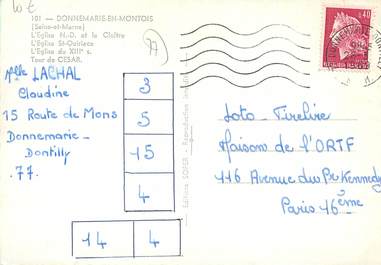 10 €
101 — DONNEMARIE-EN-MONTOIS
(Seine-et-Marne)
L'Eglise N.-D. et le Cloître
L'Eglise St-Quiriace
L'Eglise du XIIIe s.
Tour de CESAR.
A
0,40
Mlle LACHAL
Claudine
15 Route de Mons
Donnemarie-
Dontilly
.77.
3
5
15
4
14 4
Editions SOFER - Reproduction
Loto - Tirelire
Maison de l'ORTF
116 Avenue du Pt Kennedy
Paris 16ème